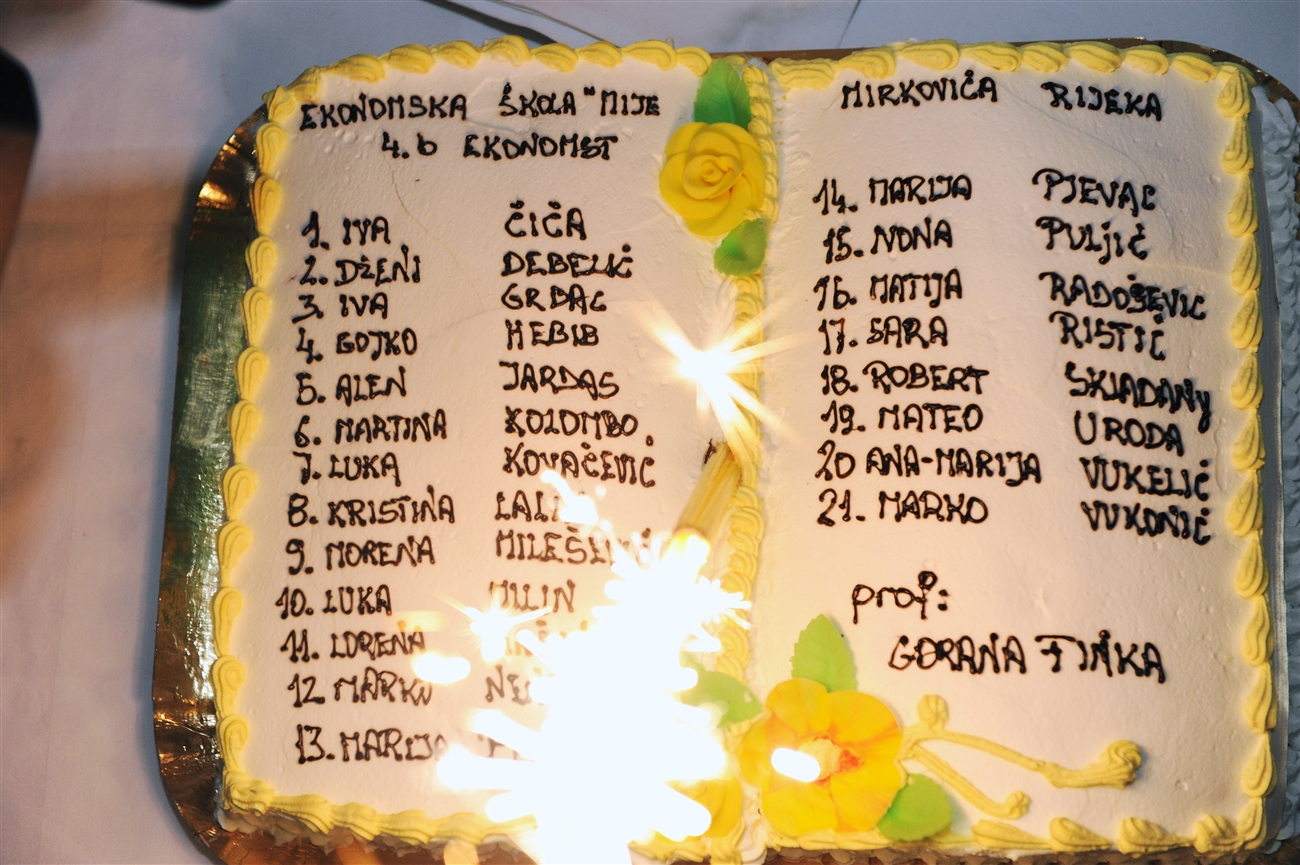 EKONOMSKA ŠKOLA "MIJE
4. b EKONOMIST
1. IVA ČIČA
2. DŽENI DEBELIĆ
3. IVA GRBAC
4. GOJKO HEBIB
5. ALEN JARDAS
6. MARTINA KOLOMBO
7. LUKA KOVAČEVIĆ
8. KRISTINA
9. MORENA
10. LUKA MILIN
11. LORENA
12 MARKO
13. MARIJA
MIRKOVIĆA RIJEKA
14. MARIJA PJEVAC
15. NONA PULJIĆ
16. MATIJA RADOŠEVIC
17. SARA RISTIĆ
18. ROBERT SKLADANY
19. MATEO URODA
20 ANA-MARIJA VUKELIĆ
21. MARKO VUKONIĆ
prof:
GORANA FINKA